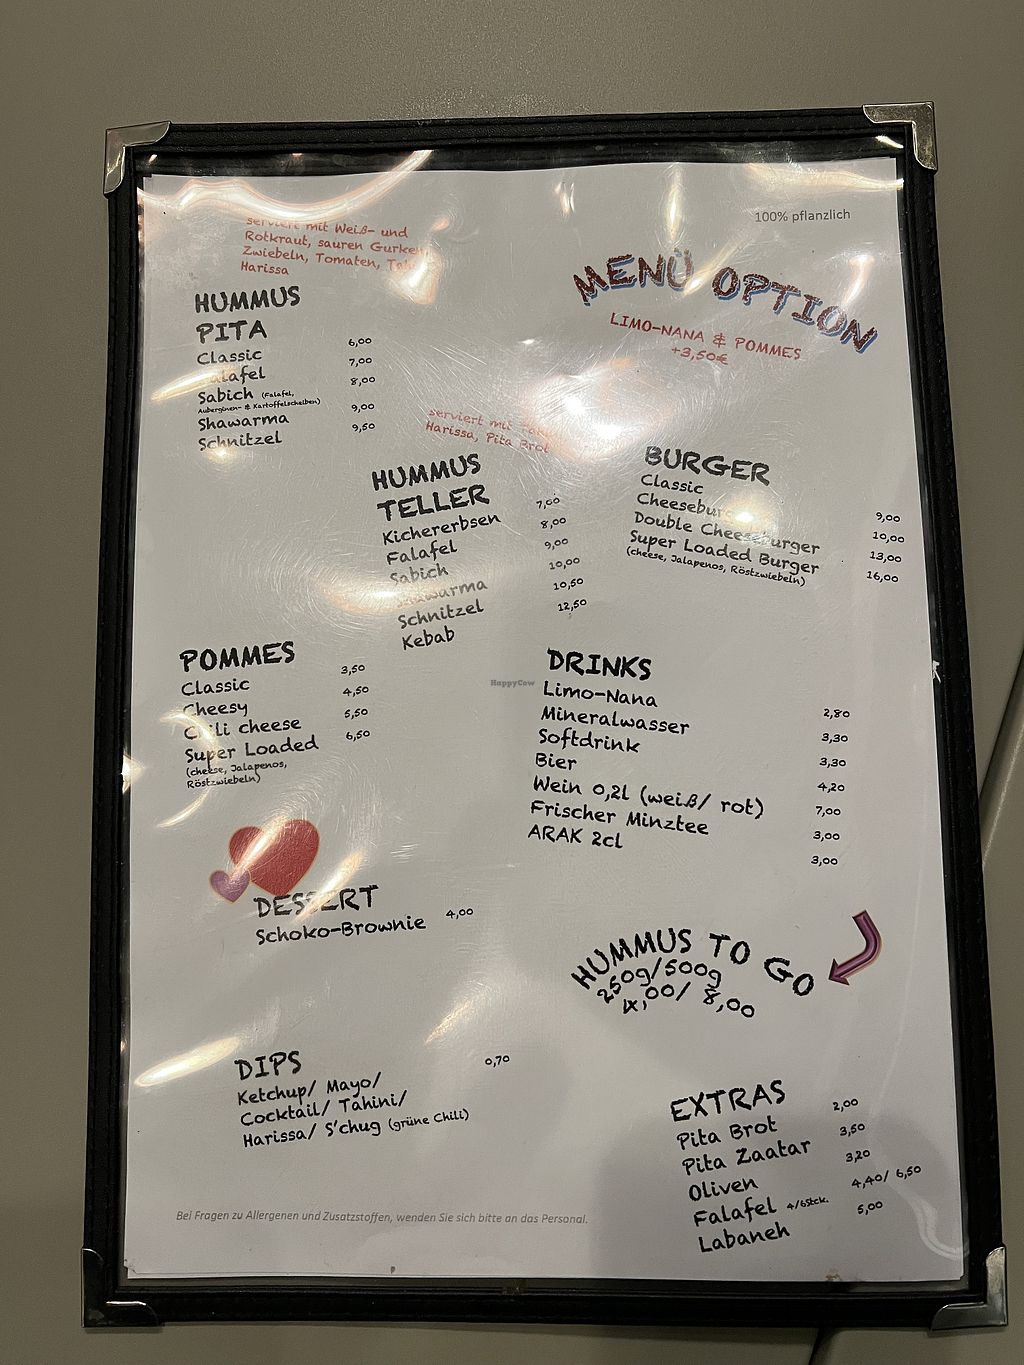 100% pflanzlich
serviert mit Weiß- und
Rotkraut, sauren Gurken,
Zwiebeln, Tomaten,
Harissa
MENÜ OPTION
LIMO-NANA & POMMES
+3,50€
HUMMUS
PITA
Classic 6,00
Falafel 7,00
Sabich (Falafel, 8,00
Auberginen- & Kartoffelscheiben)
Shawarma 9,00
Schnitzel 9,50
serviert mit
Harissa, Pita Brot
HUMMUS
TELLER
Kichererbsen 7,00
Falafel 8,00
Sabich 9,00
Shawarma 10,00
Schnitzel 10,50
Kebab 12,50
BURGER
Classic 9,00
Cheeseburger 10,00
Double Cheeseburger 13,00
Super Loaded Burger 16,00
(cheese, Jalapenos, Röstzwiebeln)
POMMES
Classic 3,50
Cheesy 4,50
Chili cheese 5,50
Super Loaded 6,50
(cheese, Jalapenos,
Röstzwiebeln)
DRINKS
Limo-Nana 2,80
Mineralwasser 3,30
Softdrink 3,30
Bier 4,20
Wein 0,2l (weiß/ rot) 7,00
Frischer Minztee 3,00
ARAK 2cl 3,00
HappyCow
DESSERT
Schoko-Brownie 4,00
HUMMUS TO GO
250g/500g
4,00/ 8,00
DIPS 0,70
Ketchup/ Mayo/
Cocktail/ Tahini/
Harissa/ S'chug (grüne Chili)
EXTRAS
Pita Brot 2,00
Pita Zaatar 3,50
Oliven 3,20
Falafel 4/6Stck. 4,40/ 6,50
Labaneh 5,00
Bei Fragen zu Allergenen und Zusatzstoffen, wenden Sie sich bitte an das Personal.